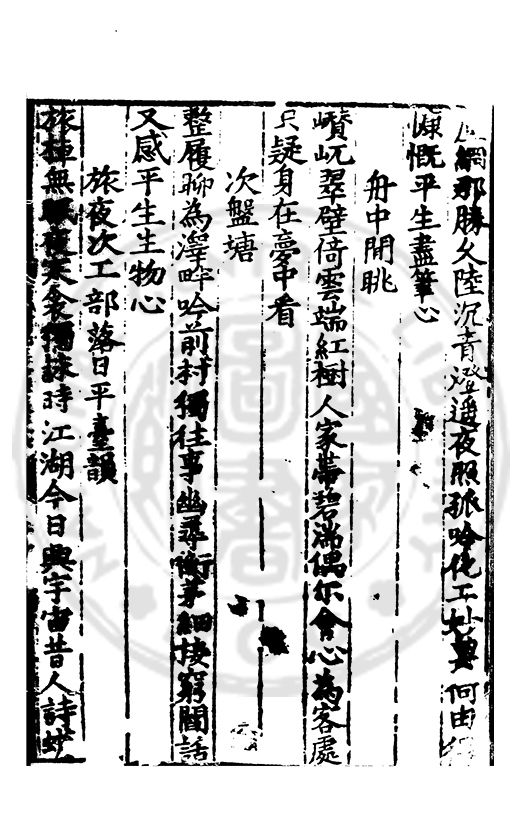 網那勝久陸沉青燈遥夜照孤吟化工妙奧何由
慷慨平生盡筆心
舟中閒眺
巑岏翠壁倚雲端紅樹人家帶碧湍偶尔會心為客處
只疑身在夢中看
次盤塘
整履聊為澤畔吟前村獨往事幽尋衡茅細接窮閻話
又感平生生物心
旅夜次工部落日平臺韻
旅無眠夜寒衾獨詠時江湖今日興宇宙昔人詩